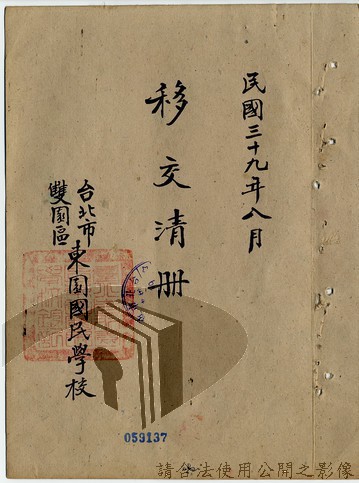 民國三十九年八月
移交清册
台北市
雙園區
東園國民學校
059137
請合法使用公開之影像